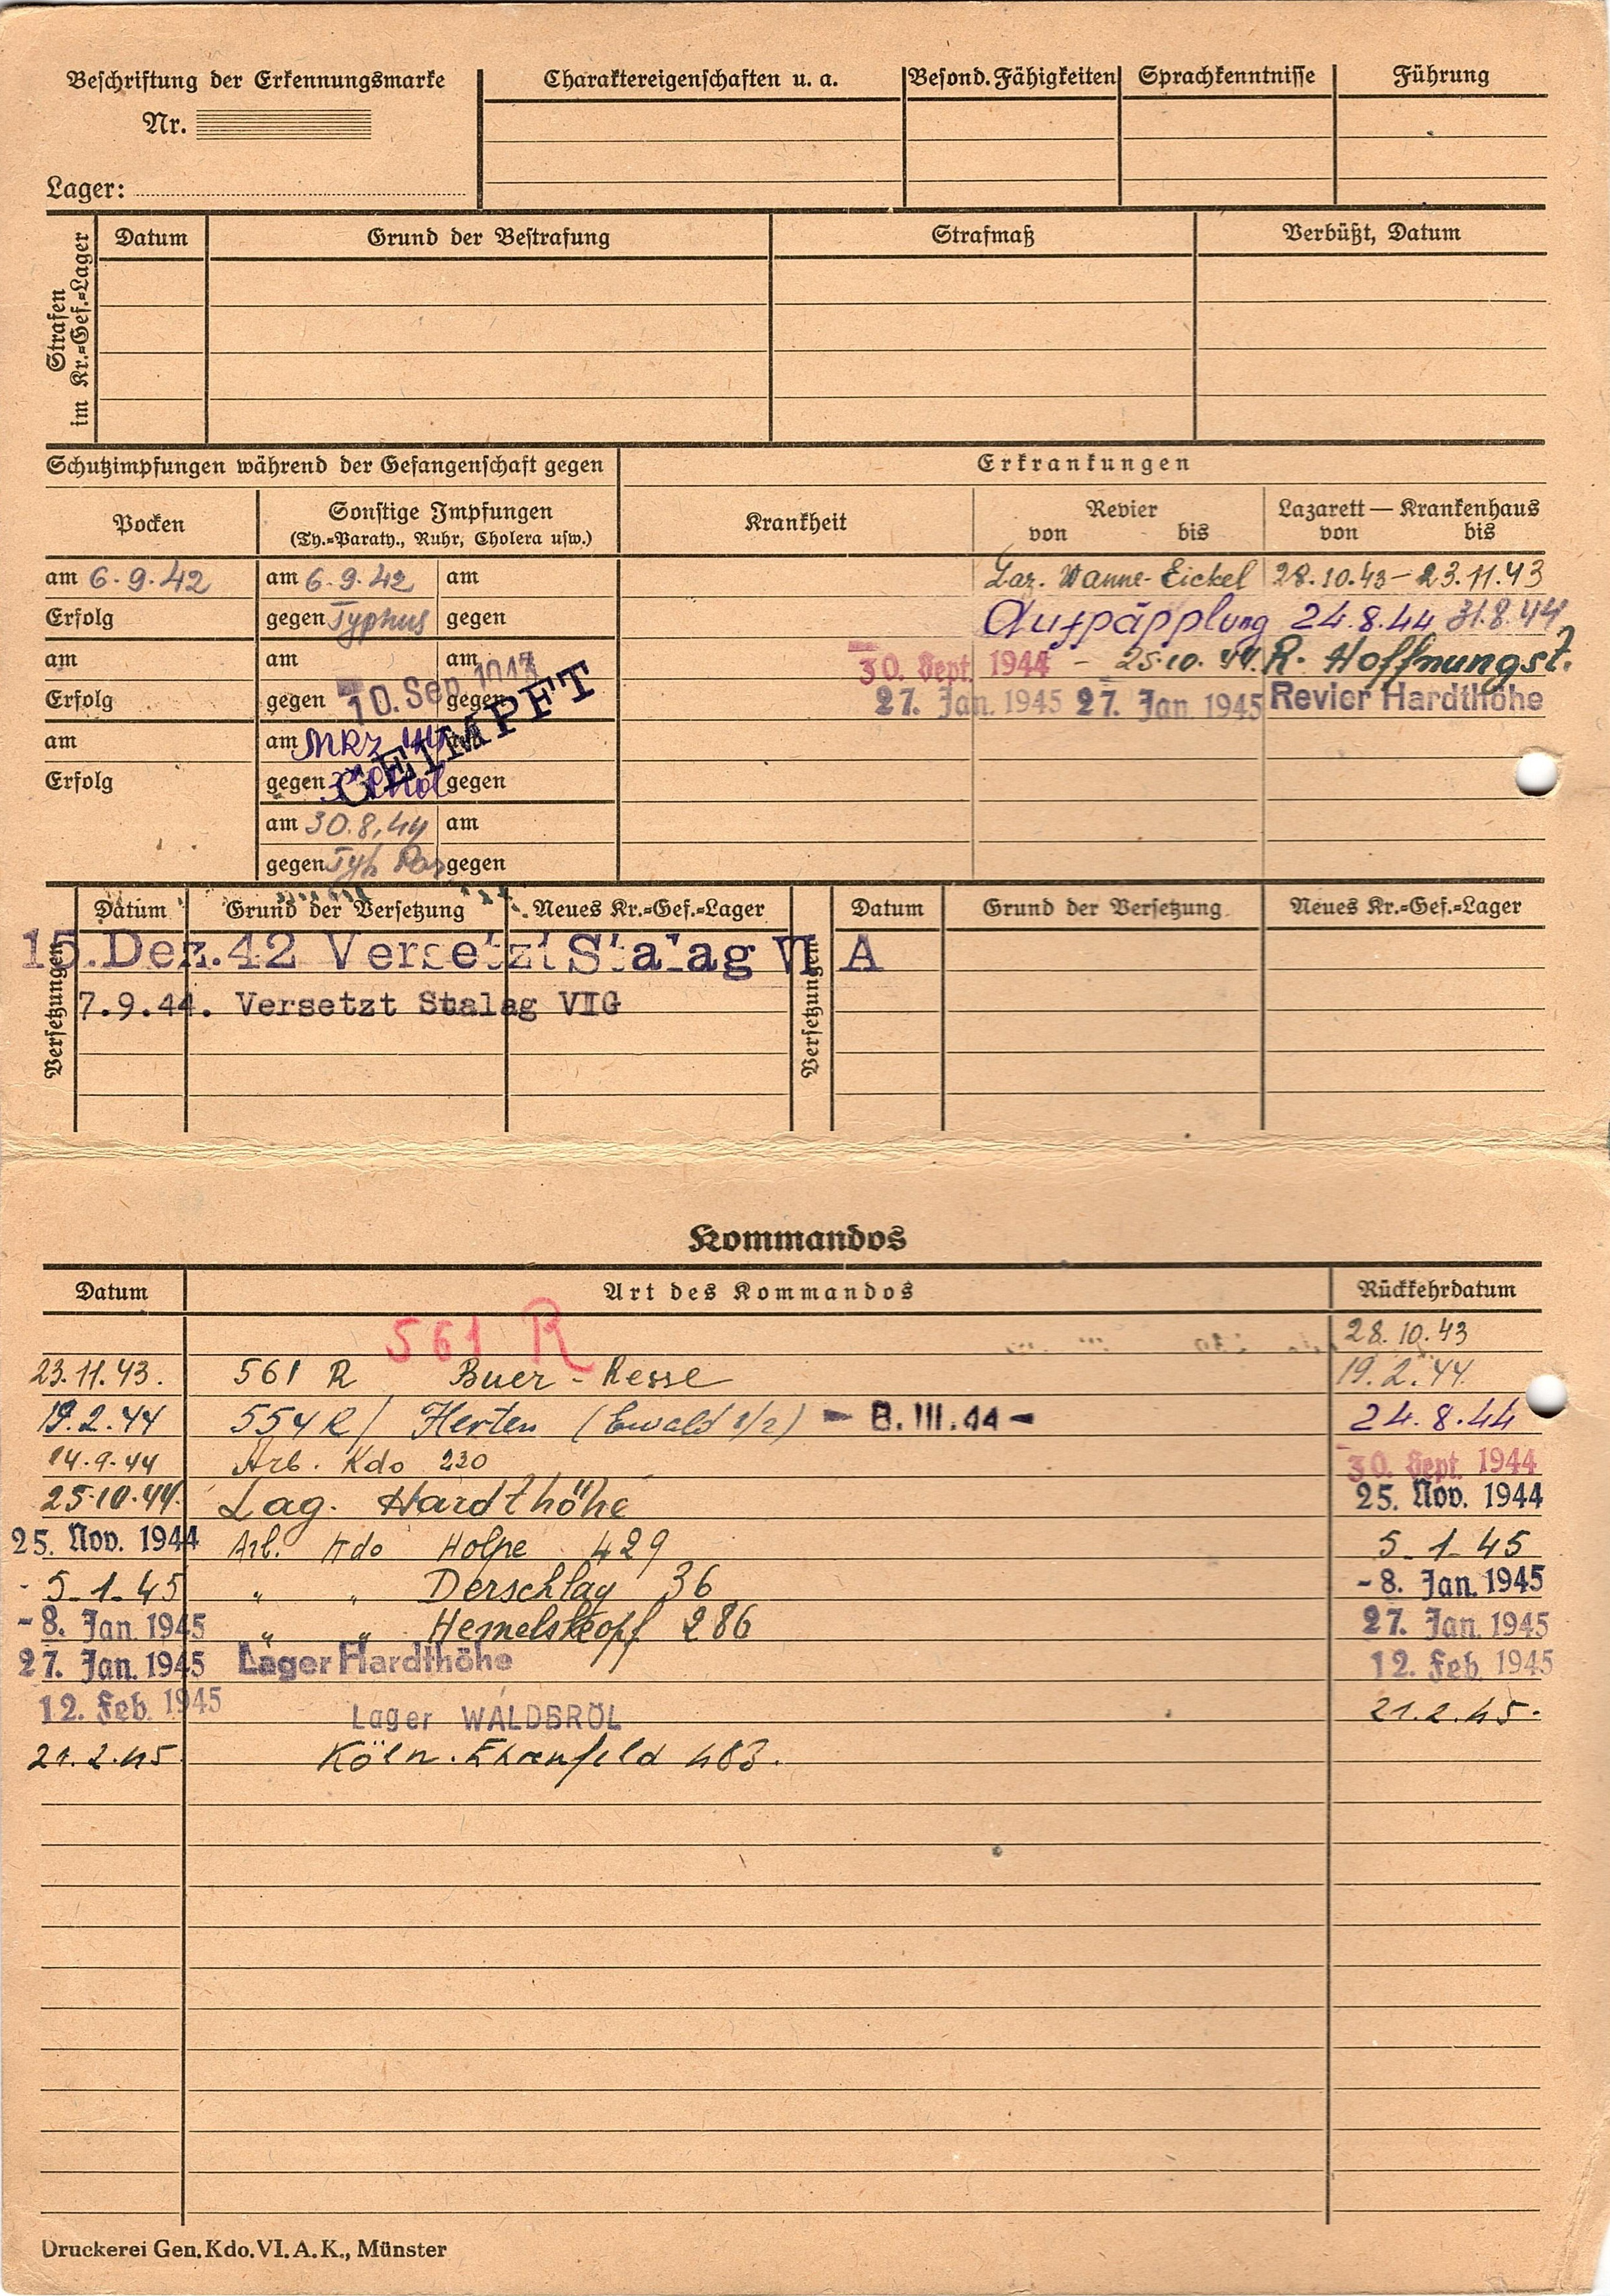 Beschriftung der Erkennungsmarke
Nr.
Lager:
Charaktereigenschaften u. a.
Besond. Fähigkeiten
Sprachkenntnisse
Führung
Strafen im Kr.=Gef.=Lager
Datum Grund der Bestrafung Strafmaß Verbüßt, Datum
Schutzimpfungen während der Gefangenschaft gegen
Erkrankungen
Pocken
Sonstige Impfungen
(Ty.=Paraty., Ruhr, Cholera usw.)
Krankheit
Revier
von bis
Lazarett — Krankenhaus
von bis
am 6.9.42 am 6.9.42 am
Laz. Wanne-Eickel 28.10.43 - 23.11.43
Erfolg gegen Typhus gegen
Aufpäpplung 24.8.44 31.8.44
am am am
30. Sept. 1944 - 25.10.44. R. Hoffnungst.
Erfolg gegen 10. Sep. 1943 gegen
GEIMPFT
27. Jan. 1945 27. Jan. 1945 Revier Hardthöhe
am am MRZ 44
Erfolg gegen gegen
am 30.8.44 am
gegen Typh Par gegen
Versetzungen
Datum Grund der Versetzung Neues Kr.=Gef.=Lager
Versetzungen
Datum Grund der Versetzung Neues Kr.=Gef.=Lager
15. Dez. 42 Versetzt Stalag VI A
7.9.44. Versetzt Stalag VIG
Kommandos
Datum Art des Kommandos Rückkehrdatum
561 R 28.10.43
23.11.43. 561 R Buer - Resse 19.2.44
19.2.44 554 R / Herten (Ewald 1/2) - 8.III.44 - 24.8.44
14.9.44 Arb. Kdo 230 30. Sept. 1944
25.10.44. Lag. Hardthöhe 25. Nov. 1944
25. Nov. 1944 Arb. Kdo Holpe 429 5-1-45
- 5-1-45 " " Derschlag 36 - 8. Jan. 1945
- 8. Jan. 1945 " " Hemelskopf 286 27. Jan. 1945
27. Jan. 1945 Lager Hardthöhe 12. Feb. 1945
12. Feb. 1945 Lager WALDBRÖL 21.2.45.
21.2.45 Köln. Ehrenfeld 483.
Druckerei Gen. Kdo. VI. A. K., Münster